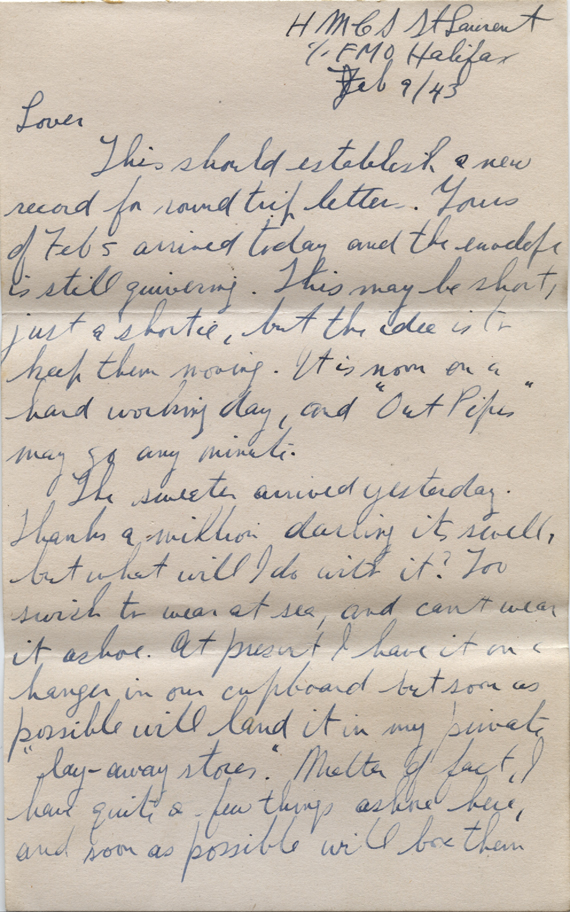 HMCS St Laurent
℅ FMO Halifax
Feb 9/43
Lover
This should establish a new
record for round trip letters. Yours
of Feb 5 arrived today and the envelope
is still quivering. This may be short,
just a shortie, but the idea is to
keep them moving. It is noon on a
hard working day, and "Out Pipes"
may go any minute.
The sweater arrived yesterday.
Thanks a million darling its swell,
but what will I do with it? Too
swish to wear at sea, and can't wear
it ashore. At present I have it on a
hanger in our cupboard but soon as
possible will land it in my private
"lay-away stores." Matter of fact, I
have quite a few things ashore here,
and soon as possible will box them